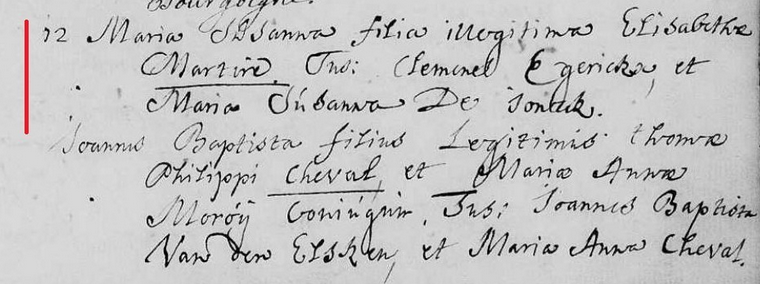 Bourgoigne.
12 Maria Susanna filia illegitima Elisabethæ
Martire, Sus: Clemens Egerickx, et
Maria Susanna De
Joannes Baptista filius Legitimus thomæ
Philippi Cheval, et Mariæ Annæ
Moroÿ Coniugum, Sus: Joannes Baptista
Van den Elsken, et Maria Anna Cheval.